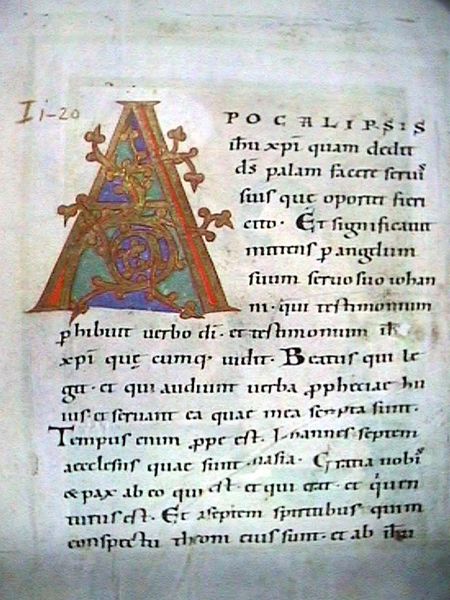 I i-20
APOCALIPSIS
ihu xpi quam dedit
ds palam facere servis
suis quę oportet fieri
cito. Et significavit
mittens p angelum
suum servo suo iohan
ni. qui testimonium
phibuit verbo di. et testimonium ihu
xpi quę cumq; vidit. Beatus qui le
git. et qui audiunt verba ppheciae hu
ius et servant ea quae in ea scripta sunt.
Tempus enim ppe est. Iohannes septem
aecclesiis quae sunt in asia. Gratia vobis
& pax ab eo qui est. et qui erat. et qui ven
turus est. Et a septem spiritibus qui in
conspectu throni eius sunt. et ab ihu